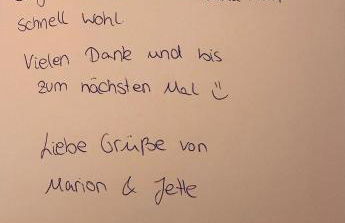 schnell wohl
Vielen Dank und bis
zum nächsten Mal ☺
Liebe Grüße von
Marion & Jette